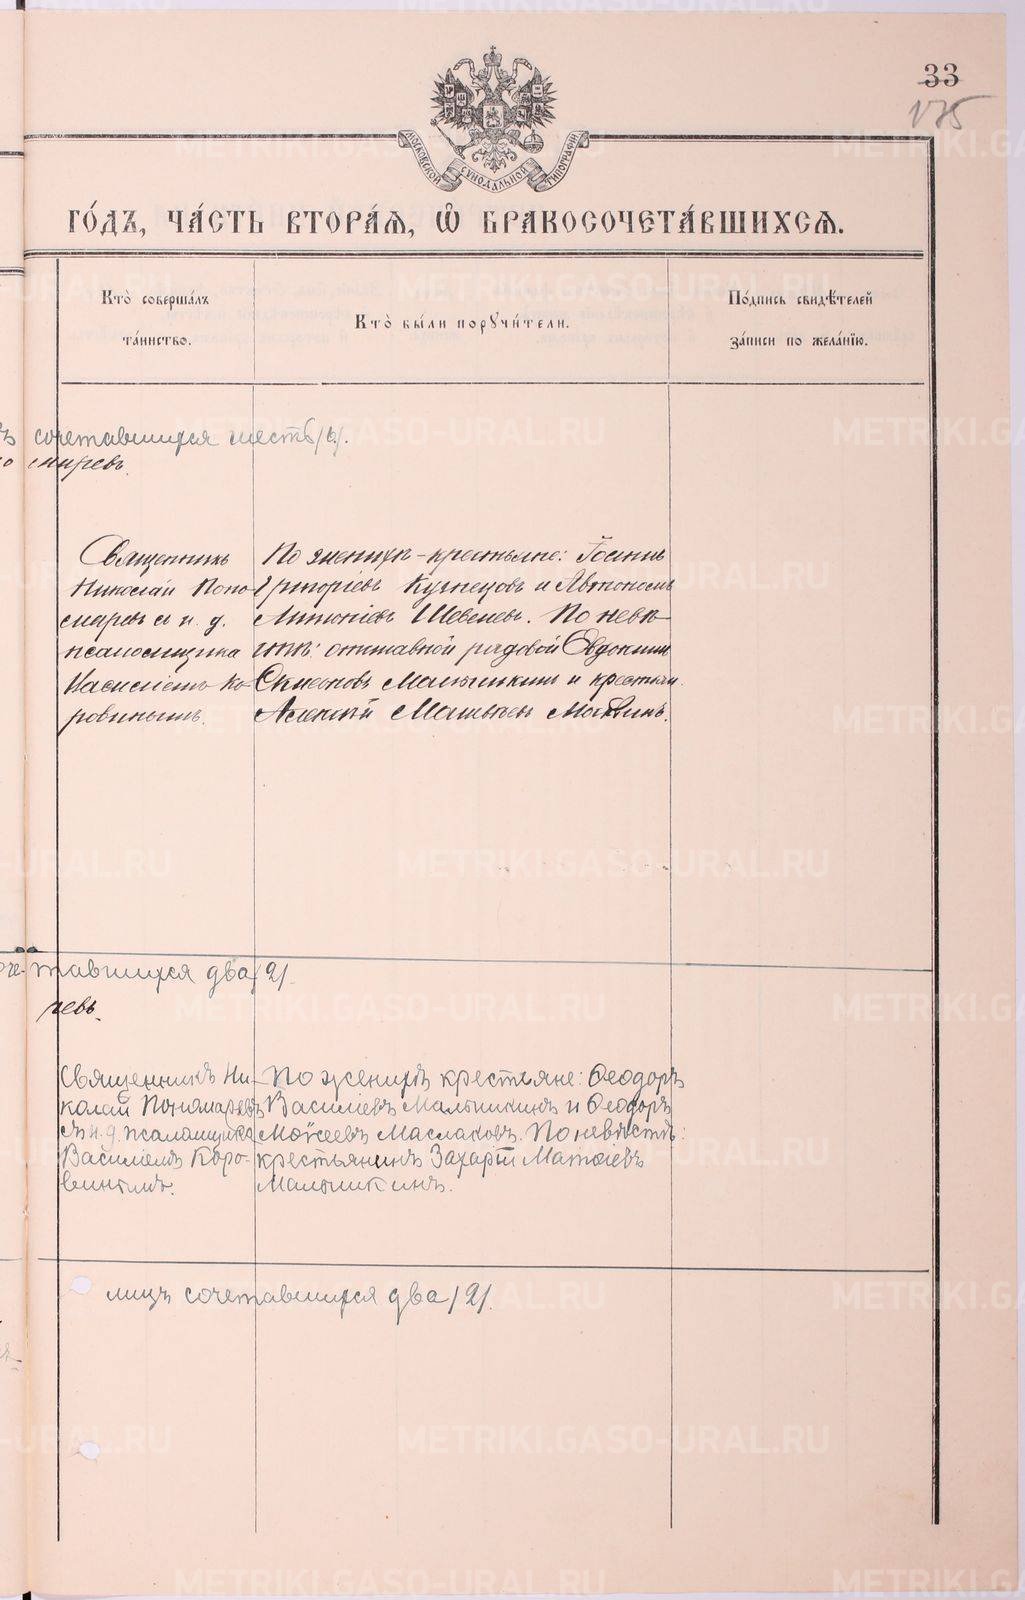 33
175
МОСКОВСКОЙ СѴНОДАЛЬНОЙ ТИПОГРАФІИ
ГО́ДЪ, ЧА́СТЬ ВТОРА́Я, Ѽ БРАКОСОЧЕТА́ВШИХСЯ.
Кто̀ соверша́лъ
та́инство.
Кто̀ бы́ли пор𙋣чи́тели.
По́дпись свидѣ́телей
за́писи по жела́нїю.
сочетавшихся шесть /6/.
Священникъ
Николай Поно-
маревъ съ и. д.
псаломщика
Василіемъ Ко-
ровинымъ.
По женихѣ - крестьяне: Іоаннъ
Григоріевъ Кузнецовъ и Автономъ
Антоніевъ Шевелевъ. По невѣ-
стѣ: отставной рядовой Евдокимъ
Симеоновъ Малышкинъ и крестьян.
Алексій Матвѣевъ Москвинъ.
тавшихся два /2/.
ревъ.
Священникъ Ни-
колай Пономаревъ
съ и. д. псаломщика
Василіемъ Коро-
винымъ.
По женихѣ крестьяне: Ѳеодоръ
Василіевъ Малышкинъ и Ѳеодоръ
Моѵсеевъ Маслаковъ. По невѣстѣ:
крестьянинъ Захарій Матѳіевъ
Малышкинъ.
лицъ сочетавшихся два /2/.
METRIKI.GASO-URAL.RU